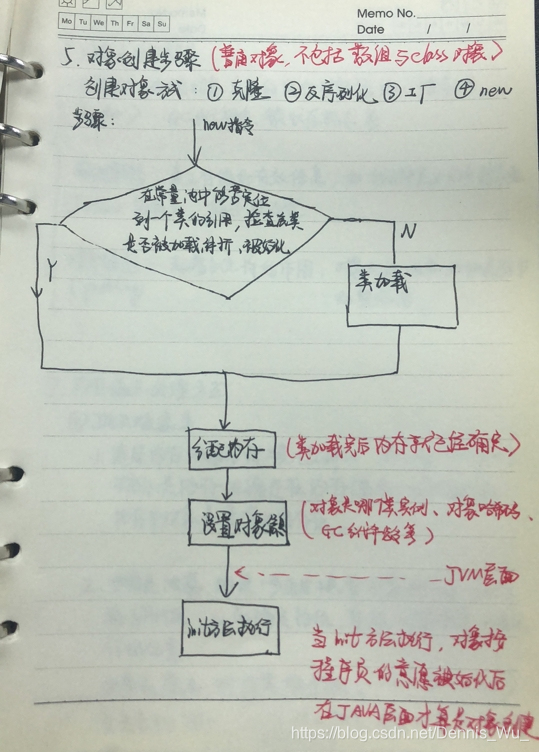 Memo No.
Mo Tu We Th Fr Sa Su
Date / /
5. 对象创建步骤 (普通对象, 不包括数组与class对象)
创建对象方式: ① 克隆 ② 反序列化 ③ 工厂 ④ new
步骤:
new指令
在常量池中能否定位
到一个类的引用, 检查该类
是否被加载,解析,初始化
Y
N
类加载
分配内存
(类加载完后内存就已经确定)
设置对象头
(对象是哪个类实例、对象哈希码、
GC分代年龄等)
JVM层面
init方法执行
当init方法执行, 对象按
程序员的意愿初始化后
在JAVA层面才算是对象创建
https://blog.csdn.net/Dennis_Wu_